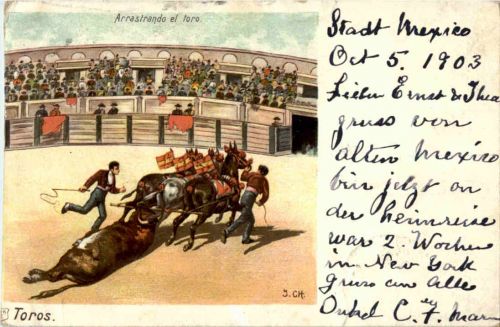 Arrastrando el toro.
Stadt Mexico
Oct 5. 1903
Lieber Ernst & Thea
gruss von
alten Mexico
bin jetzt on
der heimreise
war 2. Wochen
in New York
gruss an Alle
Onkel C. F.
J. CH.
Toros.